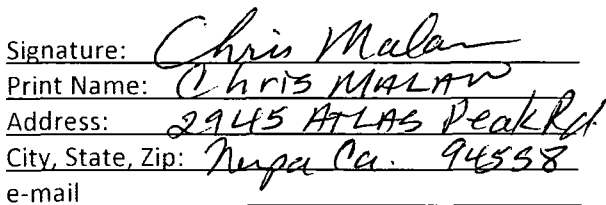 Signature: Chris Malan
Print Name: Chris MALAN
Address: 2945 ATLAS Peak Rd.
City, State, Zip: Napa Ca. 94558
e-mail